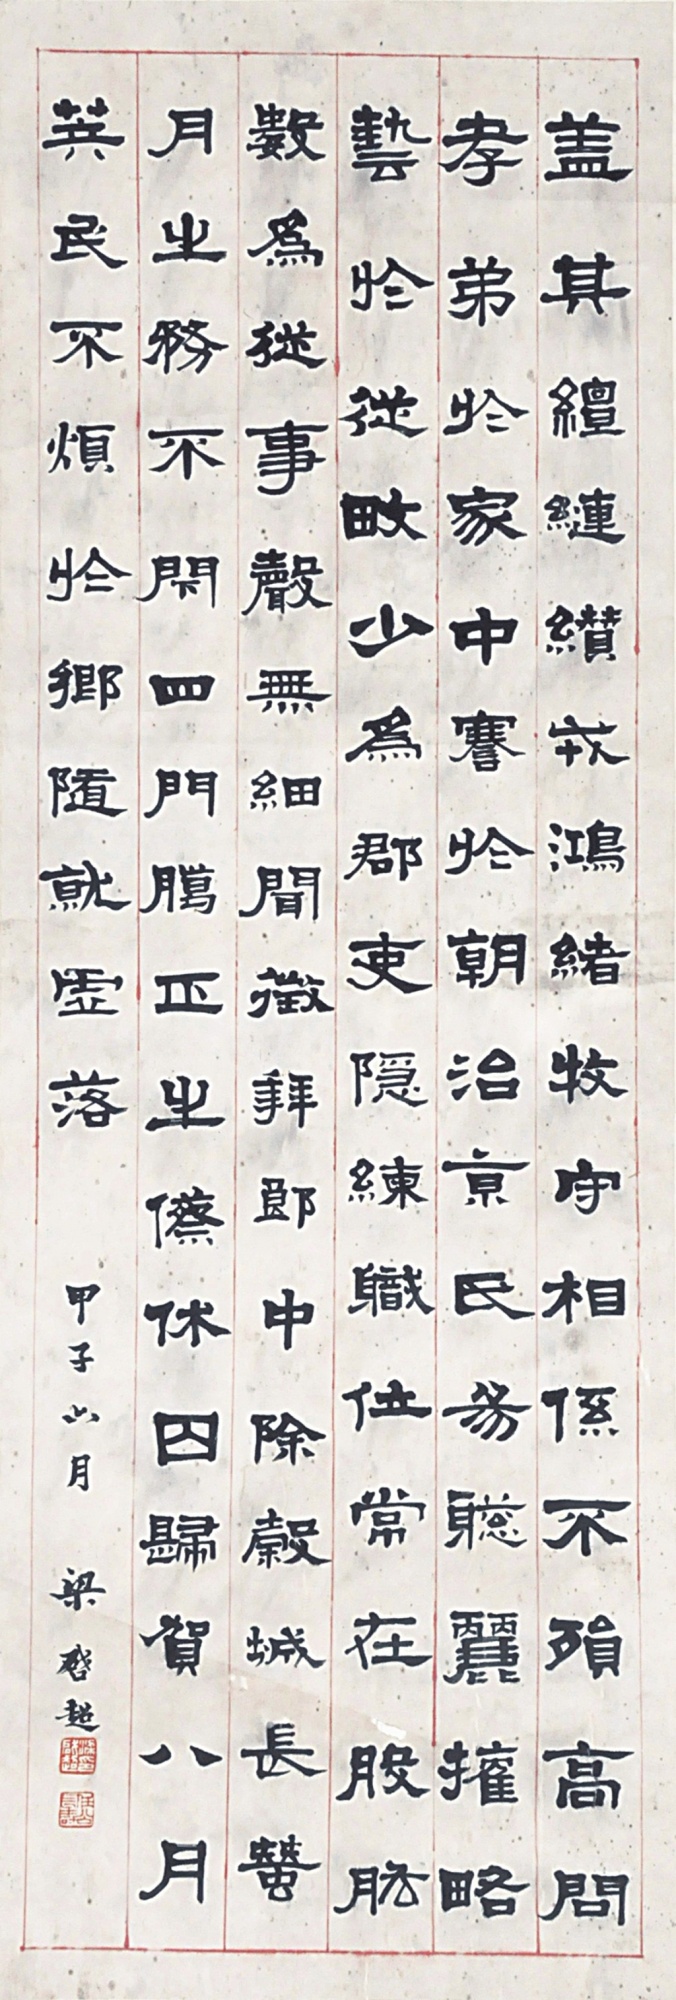 盖其繵縺纘戎鴻緒牧守相係不殞高問
孝弟於家中謇於朝治京氏易聡麗權略
藝於從畋少為郡吏隱練職位常在股肱
數為從事聲無細聞徵拜郎中除穀城長蠶
月之務不閉四門臘正之僚休囚歸賀八月
筭民不煩於鄉隨就虛落
甲子六月 梁啓超